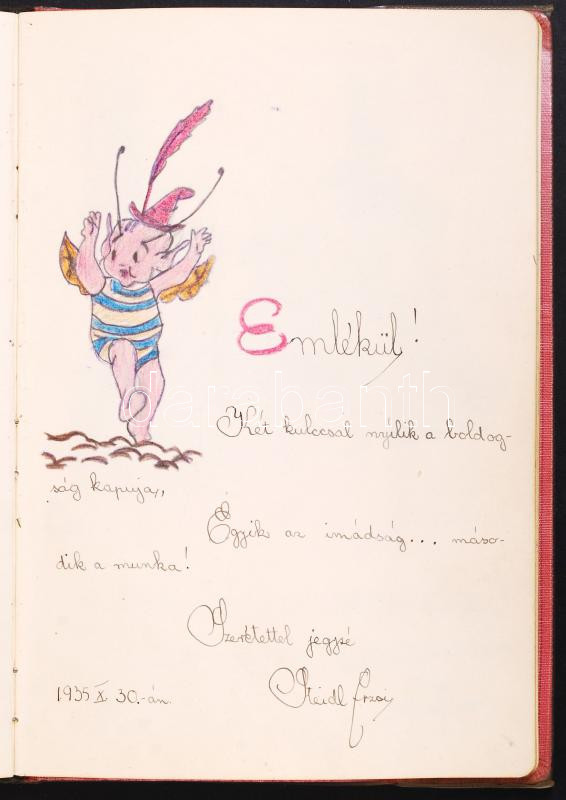 Emlékül!
Két kulccsal nyilik a boldog-
ság kapuja,
Egyik az imádság... máso-
dik a munka!
Szeretettel jegyzé
1935 X. 30.-án. Steidl Erzsi
darabanth